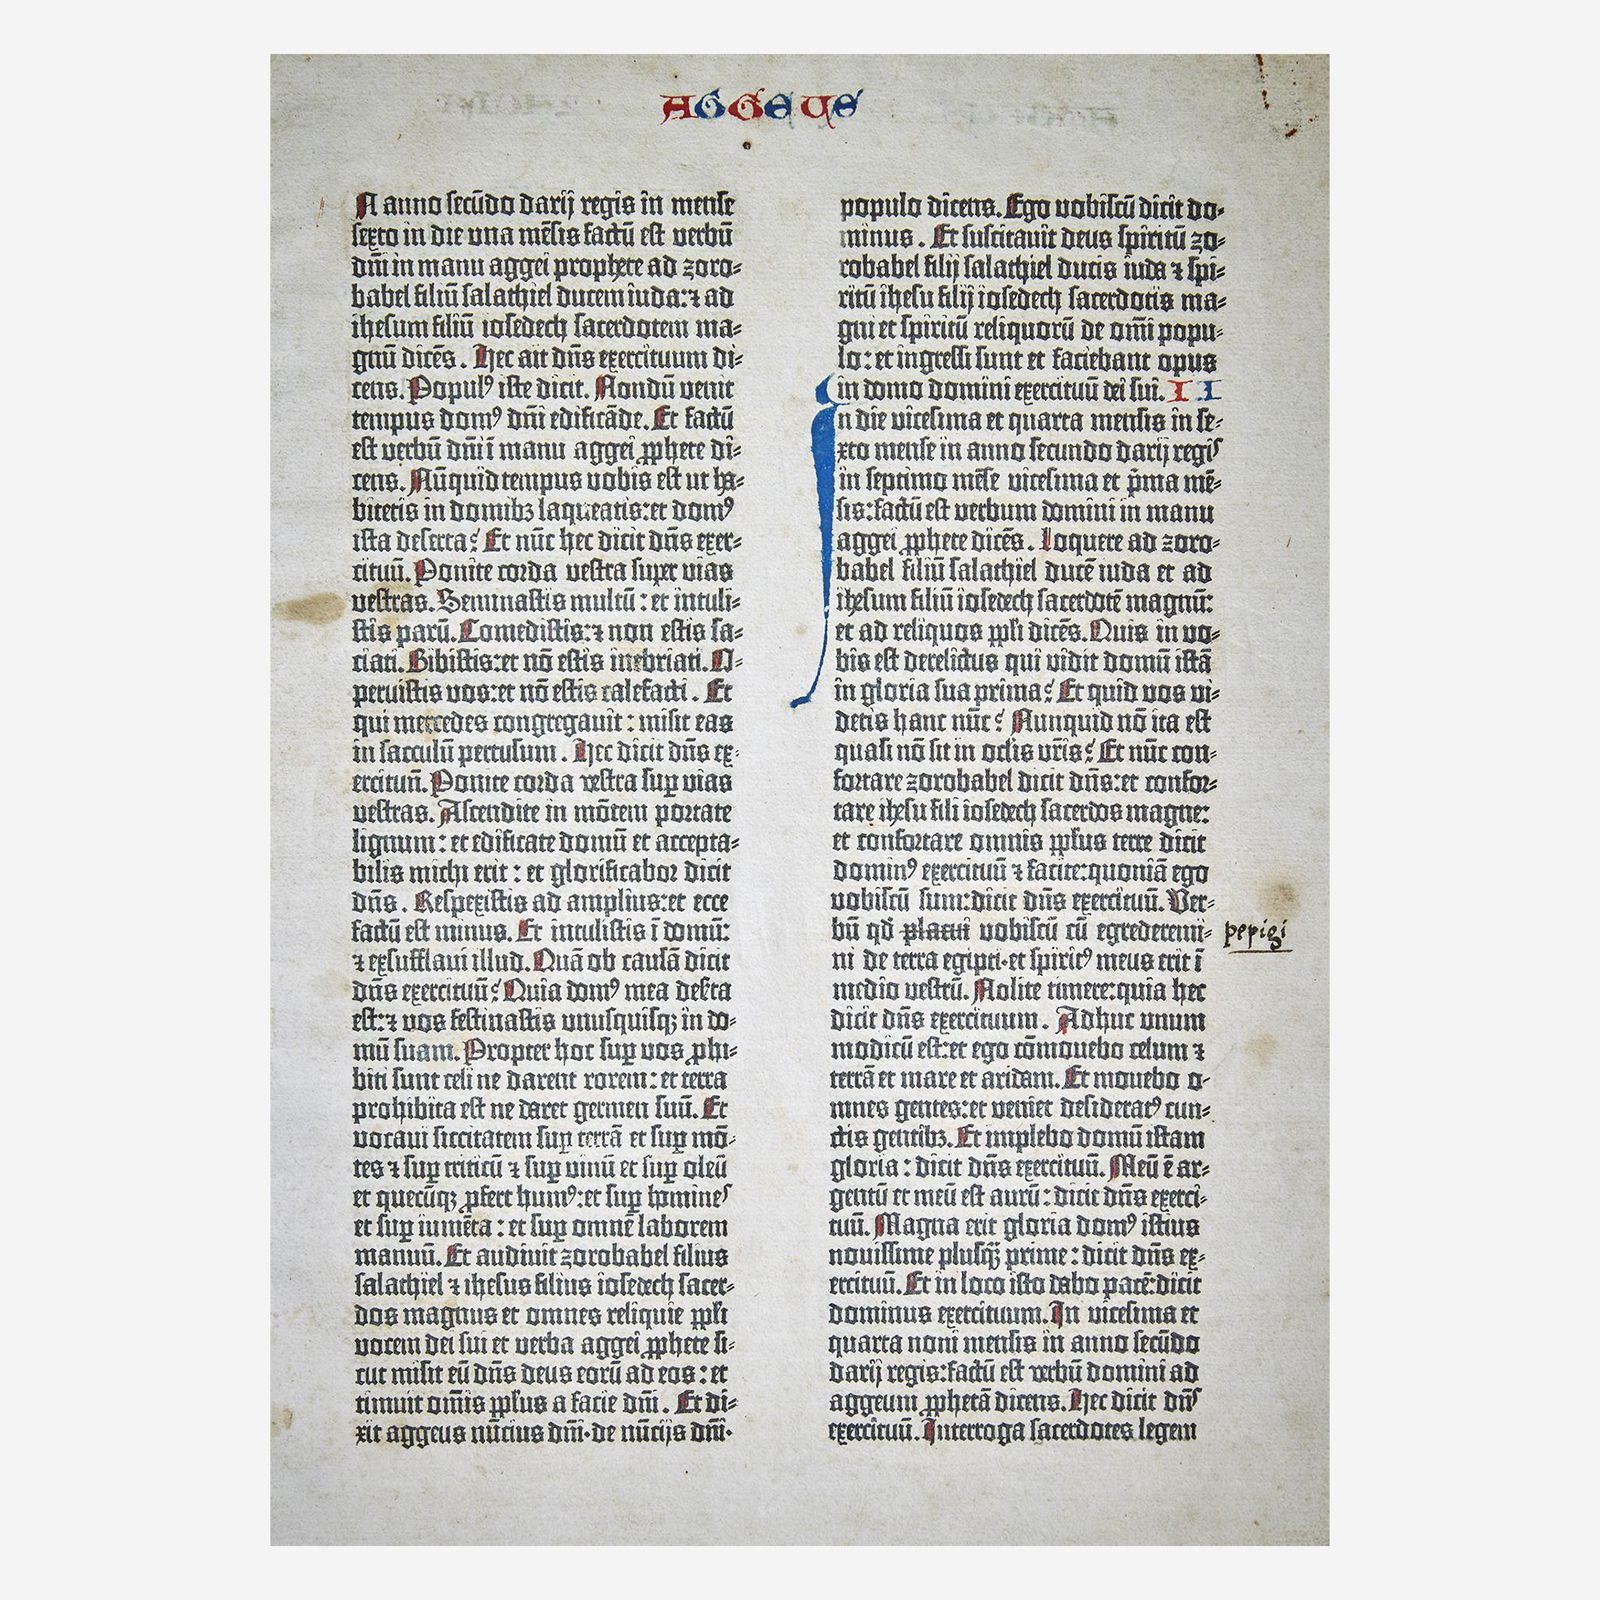 AGGEUS
N anno secūdo darij regis in mense
sexto in die una mēsis factū est verbū
dn̄i in manu aggei prophete ad zoro-
babel filiū salathiel ducem iuda: ⁊ ad
ihesum filiū iosedech sacerdotem ma-
gnū dicēs. Hec ait dn̄s exercituum di-
cens. Populꝰ iste dicit. Nondū venit
tempus domꝰ dn̄i edificāde. Et factū
est verbū dn̄i ī manu aggei ꝓphete di-
cens. Nūquid tempus vobis est ut ha-
bitetis in domibꝫ laqueatis: et domꝰ
ista deserta? Et nūc hec dicit dn̄s exer-
cituū. Ponite corda vestra super vias
vestras. Seminastis multū: et intuli-
stis parū. Comedistis: ⁊ non estis sa-
ciati. Bibistis: et nō estis inebriati. O-
peruistis vos: et nō estis calefacti. Et
qui mercedes congregavit: misit eas
in sacculū pertusum. Hec dicit dn̄s ex-
ercituū. Ponite corda vestra suꝑ vias
vestras. Ascendite in mōtem portate
lignum: et edificate domū et accepta-
bilis michi erit: et glorificabor dicit
dn̄s. Respexistis ad amplius: et ecce
factū est minus. Et intulistis ī domū:
⁊ exsufflaui illud. Quā ob causā dicit
dn̄s exercituū? Quia domꝰ mea des̄ta
est: ⁊ vos festinastis unusquisqꝫ in do-
mū suam. Propter hoc suꝑ vos ꝓhi-
biti sunt celi ne darent rorem: et terra
prohibita est ne daret germen suū. Et
vocaui siccitatem suꝑ terrā et suꝑ mō-
tes ⁊ suꝑ triticū ⁊ suꝑ vinū et suꝑ oleū
et quecūqꝫ ꝓfert humꝰ: et suꝑ homines
et suꝑ iumēta: et suꝑ omnē laborem
manuū. Et audiuit zorobabel filius
salathiel ⁊ ihesus filius iosedech sacer-
dos magnus et omnes reliquie ꝓꝓli
vocem dei sui et verba aggei ꝓphete si-
cut misit eū dn̄s deus eorū ad eos: et
timuit om̄is ꝓꝓlus a facie dn̄i. Et di-
xit aggeus nūcius dn̄i·de nūcijs dn̄i·
populo dicens. Ego vobiscū dicit do-
minus. Et suscitauit deus spiritū zo-
robabel filij salathiel ducis iuda ⁊ spi-
ritū ihesu filij iosedech sacerdotis ma-
gni et spiritū reliquorū de om̄i popu-
lo: et ingressi sunt et faciebant opus
in domo domini exercituū dei sui. II
In die vicesima et quarta mensis in se-
xto mense in anno secundo darij regis
in septimo mēse vicesima et p̄ma mē-
sis: factū est verbum domini in manu
aggei ꝓphete dicēs. Loquere ad zoro-
babel filiū salathiel ducē iuda et ad
ihesum filiū iosedech sacerdotē magnū:
et ad reliquos ꝓꝓli dicēs. Quis in vo-
bis est derelictus qui vidit domū istā
in gloria sua prima? Et quid vos vi-
detis hanc nūc? Nunquid nō ita est
quasi nō sit in oclis vr̄is? Et nūc con-
fortare zorobabel dicit dn̄s: et confor-
tare ihesu fili iosedech sacerdos magne:
et confortare omnis ꝓꝓlus terre dicit
dominꝰ exercituū ⁊ facite: quoniā ego
vobiscū sum: dicit dn̄s exercituū. Ver-
bū qd̄ placui vobiscū cū egrederemi-
pepigi
ni de terra egipti·et spiritꝰ meus erit ī
medio vestrū. Nolite timere: quia hec
dicit dn̄s exercituum. Adhuc unum
modicū est: et ego cōmouebo celum ⁊
terrā et mare et aridam. Et mouebo o-
mnes gentes: et veniet desideratꝰ cun-
ctis gentibꝫ. Et implebo domū istam
gloria: dicit dn̄s exercituū. Meū ē ar-
gentū et meū est aurū: dicit dn̄s exerci-
tuū. Magna erit gloria domꝰ istius
nouissime plusq̄ꝫ prime: dicit dn̄s ex-
ercituū. Et in loco isto dabo pacē: dicit
dominus exercituum. In vicesima et
quarta noni mensis in anno secūdo
darij regis: factū est verbū domini ad
aggeum ꝓphetā dicens. Hec dicit dn̄s
exercituū. Interroga sacerdotes legem